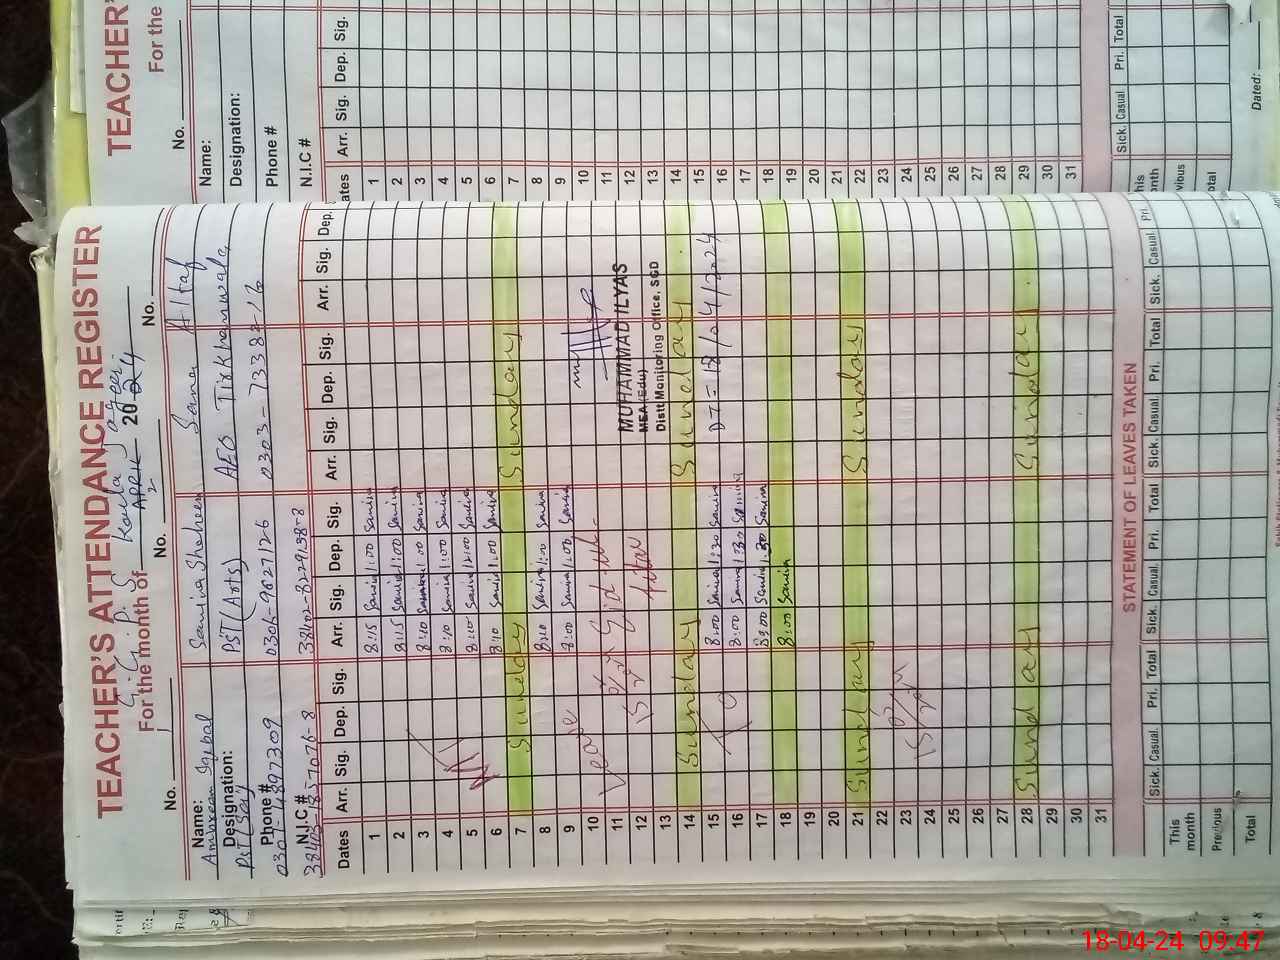 TEACHER'S ATTENDANCE REGISTER
G.G.P.S
For the month of APRIL 2024
No. No. No.
Name: Ambreen Iqbal Samina Shaheen Sana Altaf
Designation: PST (Arts) AEO
Phone # 0306-9627126 0303-
N.I.C #
Dates Arr. Sig. Dep. Sig. Arr. Sig. Dep. Sig. Arr. Sig. Dep. Sig. Arr. Sig. Dep.
1 8:15 Samina 1:00 Samina
2 8:15 Samina 1:00 Samina
3 8:10 Samina 1:00 Samina
4 8:10 Samina 1:00 Samina
5 8:10 Samina 12:00 Samina
6 8:10 Samina 1:00 Samina
7 Sunday Sunday Sunday
8 8:10 Samina 1:00 Samina
9 8:00 Samina 1:00 Samina
10 Leave Eid-ul-
11 MUHAMMAD ILYAS
12 MEA (Edu) Fitar
13 Distt Monitoring Office, SGD
14 Sunday Sunday Sunday
15 8:00 Samina 1:30 Samina DT = 18/04/2024
16 8:00 Samina 1:30 Samina
17 8:00 Samina 1:30 Samina
18 8:00 Samina
19
20
21 Sunday Sunday Sunday
22
23
24
25
26
27
28 Sunday Sunday Sunday
29
30
31
STATEMENT OF LEAVES TAKEN
Sick. Casual. Pri. Total Sick. Casual. Pri. Total Sick. Casual. Pri. Total Sick. Casual. Pri.
This month
Previous
Total
TEACHER'
For the
No.
Name:
Designation:
Phone #
N.I.C #
ates Arr. Sig. Dep. Sig.
1
2
3
4
5
6
7
8
9
10
11
12
13
14
15
16
17
18
19
20
21
22
23
24
25
26
27
28
29
30
31
Sick. Casual Pri. Total
his
onth
vious
otal
Dated:
18-04-24 09:47